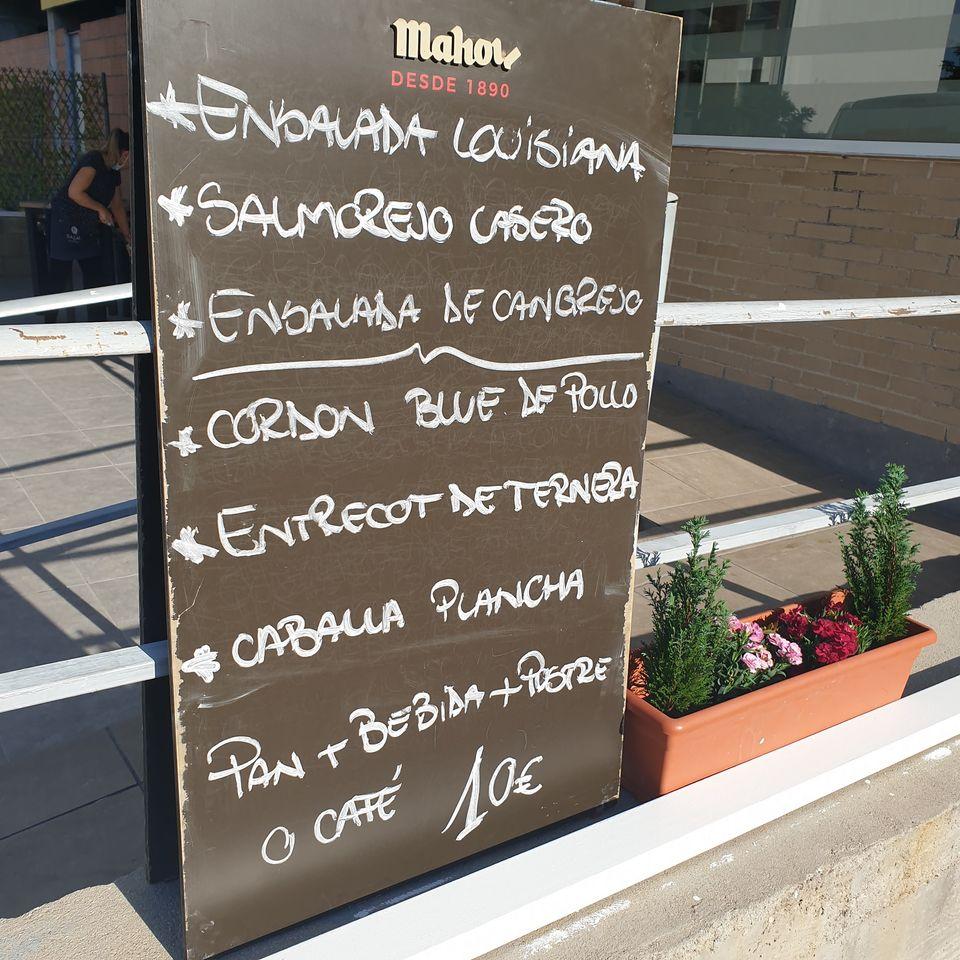 Mahou
DESDE 1890
* ENSALADA LOUISIANA
* SALMOREJO CASERO
* ENSALADA DE CANGREJO
* CORDON BLUE DE POLLO
* ENTRECOT DE TERNERA
* CABALLA PLANCHA
PAN + BEBIDA + POSTRE
O CAFÉ 10€